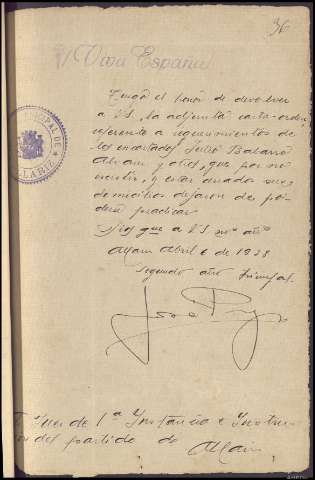 36
¡Viva España!
Tengo el honor de devolver
a VS. la adjunta carta-orden
referente a requerimientos de
los encartados Julio
y otros, que por no
y estar
domicilios dejaron de po-
derse practicar
Dios gue a VS mº añº
Allariz Abril 6 de 1938
Segundo año triunfal.
José
Juez de 1ª Instancia e Instruc-
ción del partido de Allariz